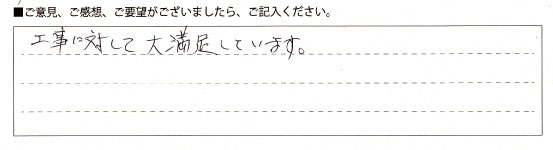 ■ご意見、ご感想、ご要望がございましたら、ご記入ください。
工事に対して大満足しています。